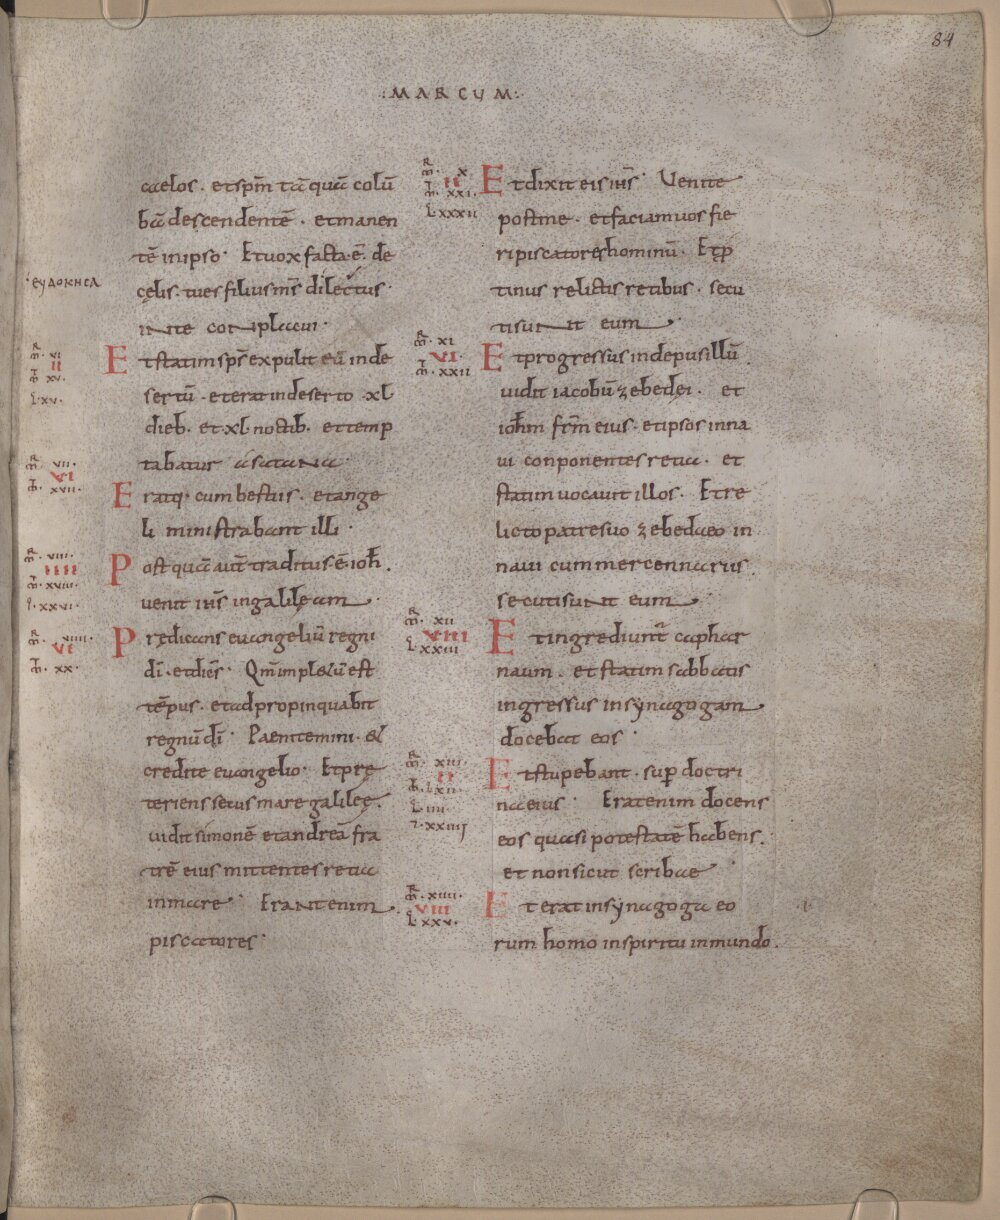 84
:MARCUM:
caelos. et spm̄ tā quā colū
bā descendentē. et manen
tē in ipso. Et uox facta. ē. de
ęυδοκηсα
cęlis. tu es filius ms̄ dilectus.
in te conplacui.
Et statim sps̄ expulit eū in de
sertū. et erat in deserto xl
dieb. et xl noctib. et temp
tabatur a satana.
Eratq. cum bestiis. et ange
li ministrabant illi.
Post quā aut̄ traditus. ē. ioh̄.
uenit ihs̄ in galileam.
Predicans euangeliū regni
dī. et diēs. Qm̄ impletū est
tēpus. et adpropinquabit
regnū dī. Paenitemini. et
credite euangelio. Et prę
teriens secus mare galileę.
uidit simonē et andreā fra
trē eius mittentes retia
in mare. Erant enim
piscatores.
R̄
m̄. vi
ii
ī
m̄. xv.
l. xv.
R̄
m̄. vii.
vi
m̄. xvii.
R̄
m̄. viii.
iiii
m̄. xviii.
l. xxvi.
R̄
m̄. viiii.
vi
m̄. xx.
R̄
m̄. x.
ii
m̄. xxi.
l. xxxii
Et dixit eis ihs̄. Uenite
post me. et faciam uos fie
ri piscatores hominū. Et p̄
tinus relictis retibus. secu
ti sunt eum.
m̄. xi
vi.
m̄. xxii
Et progressus inde pusillū
uidit iacobū zebedei. et
ioh̄m frm̄ eius. et ipsos in na
ui conponentes retia. et
statim uocauit illos. Et re
licto patre suo zebedaeo in
naui cum mercennariis.
secuti sunt eum.
R̄
m̄. xii
viii
l. xxiii
Et ingrediunt̄ caphar
naum. et statim sabbatis
ingressus in synagogam
docebat eos.
R̄
m̄. xiii.
ii
m̄. lxii.
l. iiii.
l. xxiiij
Et stupebant. sup̄ doctri
na eius. Erat enim docens
eos quasi potestatē habens.
et non sicut scribae.
R̄
m̄. xiiii.
viii
l. xxv.
Et erat in synagoga eo
rum homo in spiritu inmundo.